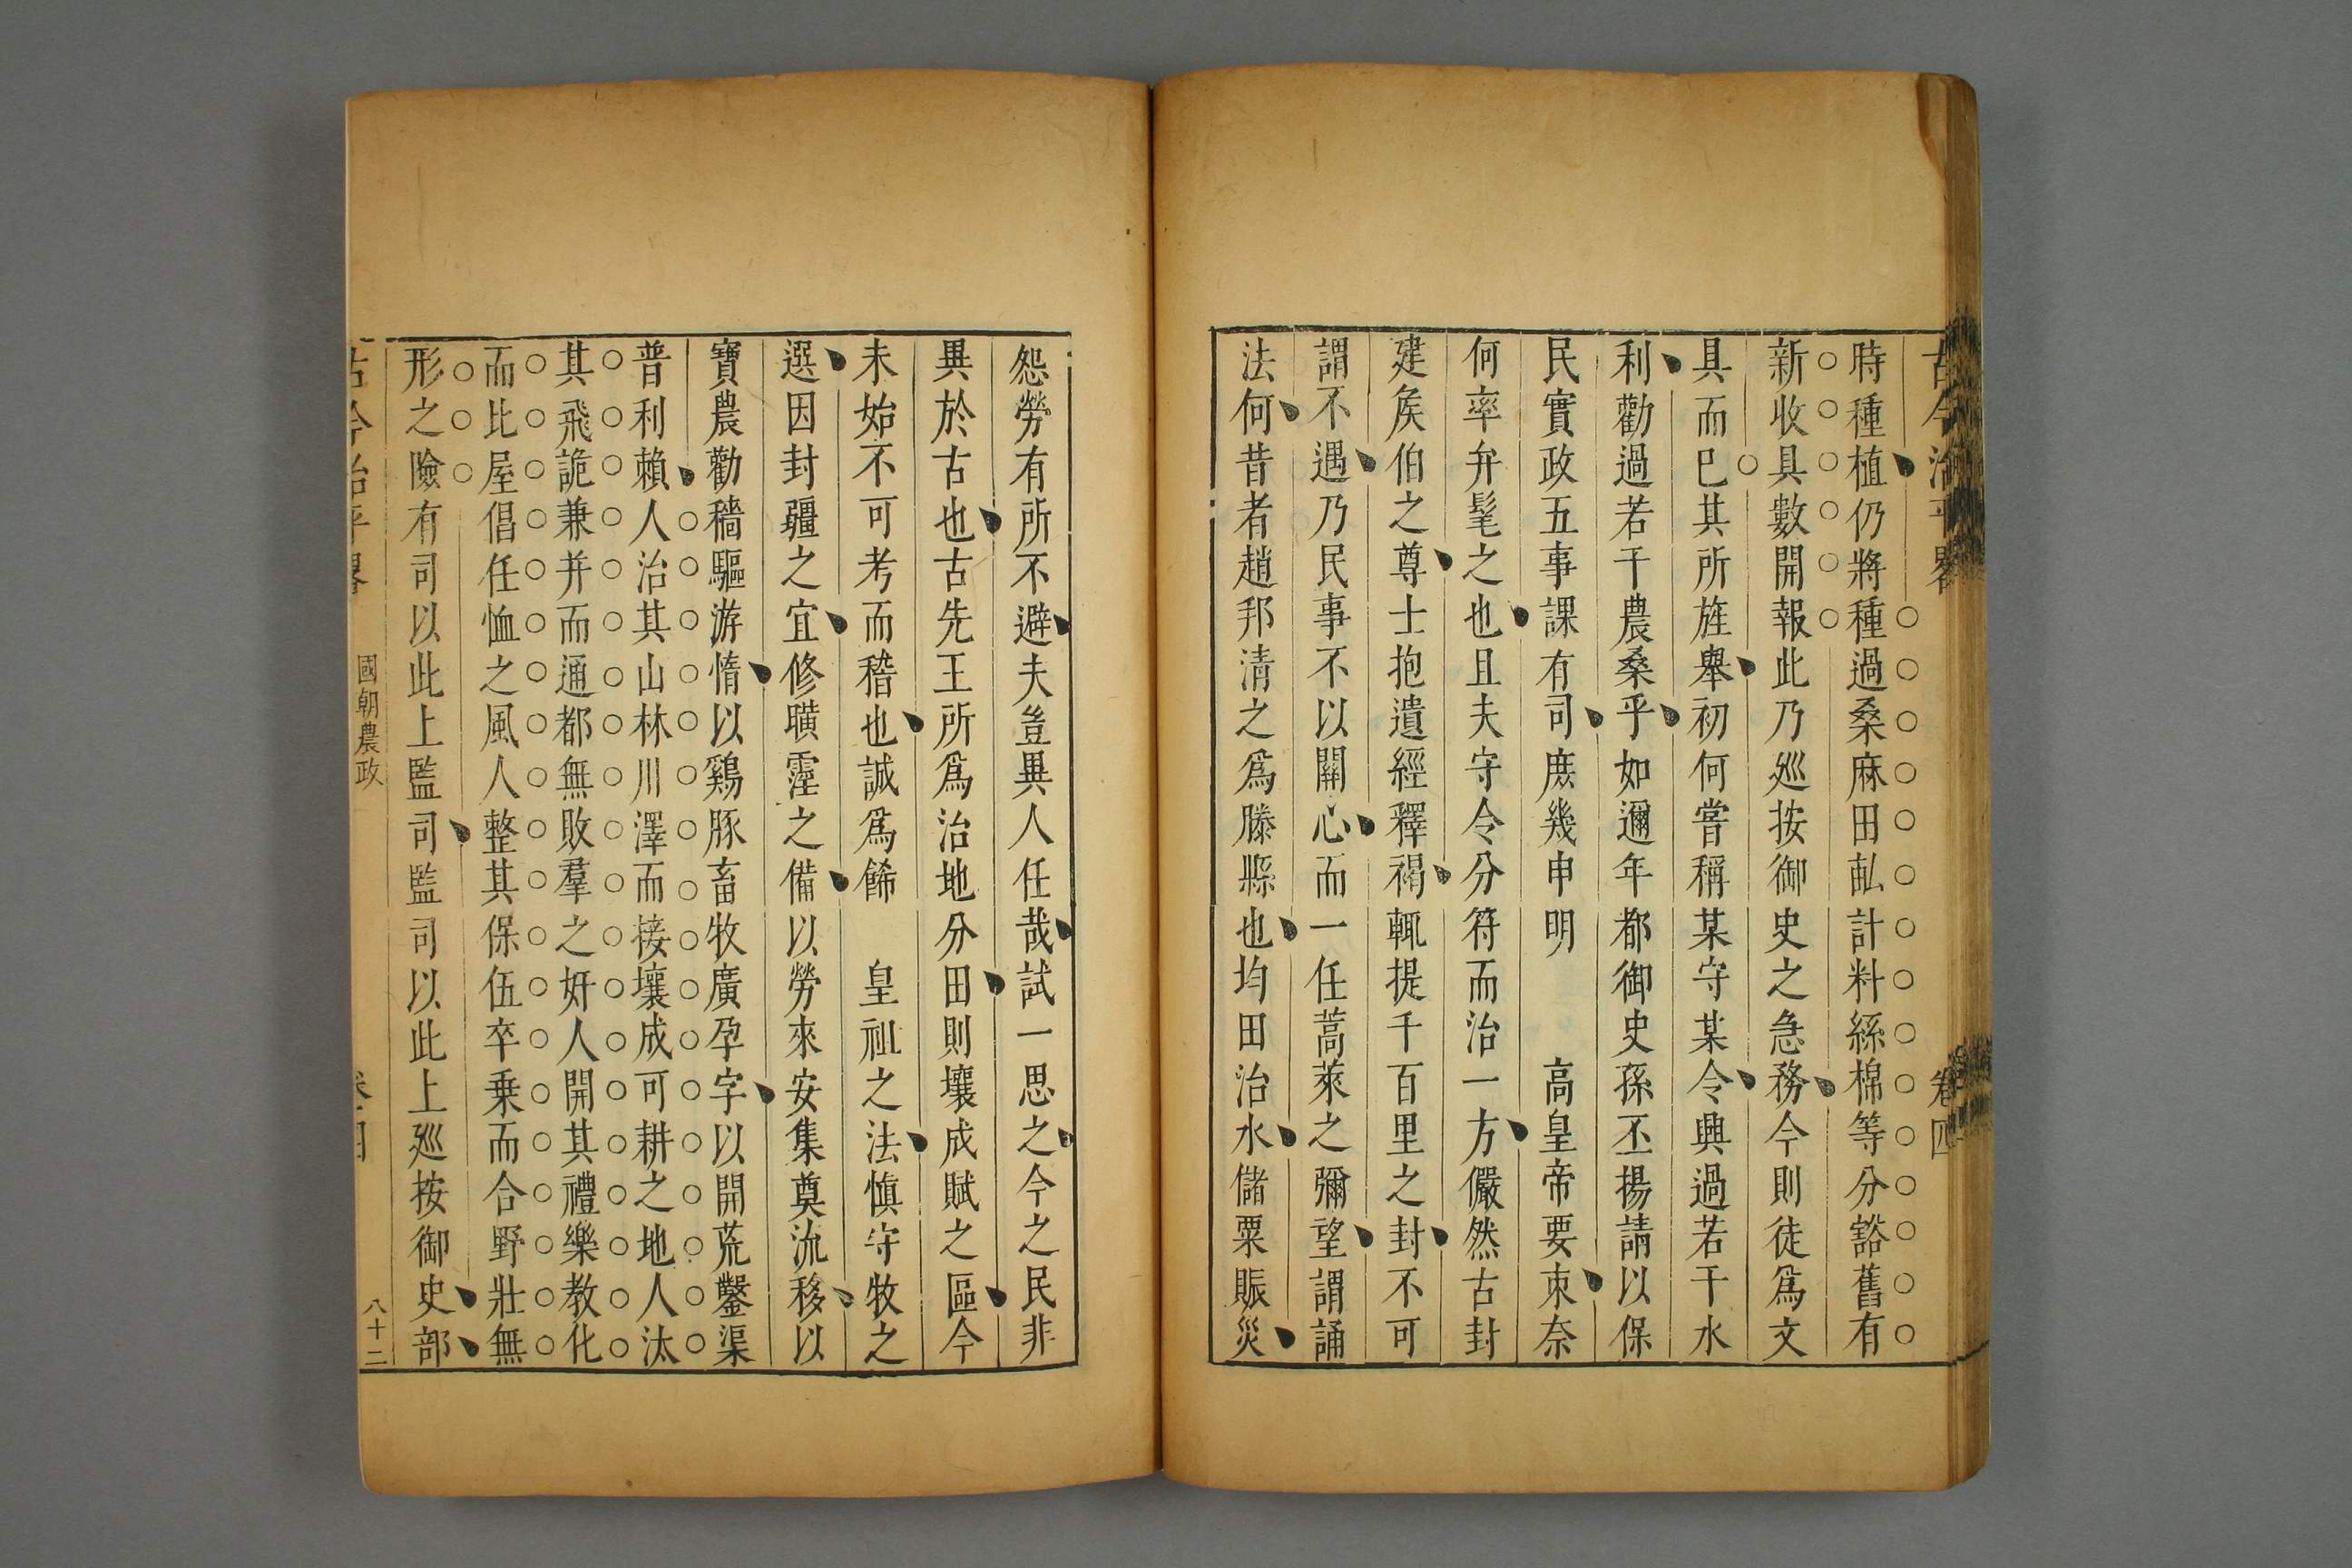 古今治平畧
卷四
時種植仍將種過桑麻田畝計料絲棉等分豁舊有
新收具數開報此乃廵按御史之急務今則徒爲文
具而巳其所旌舉初何嘗稱某守某令興過若干水
利勸過若干農桑乎如邇年都御史孫丕揚請以保
民實政五事課有司庶幾申明 高皇帝要束奈
何率弁髦之也且夫守令分符而治一方儼然古封
建矦伯之尊士抱遺經釋褐輒提千百里之封不可
謂不遇乃民事不以關心而一任蒿萊之彌望謂誦
法何昔者趙邦清之爲滕縣也均田治水儲粟賑災
怨勞有所不避夫豈異人任哉試一思之今之民非
異於古也古先王所爲治地分田則壤成賦之區今
未始不可考而稽也誠爲飾 皇祖之法愼守牧之
選因封疆之宜修暵霪之備以勞來安集奠流移以
寶農勸穡驅游惰以鷄豚畜牧廣孕字以開荒鑿渠
普利賴人治其山林川澤而接壤成可耕之地人汰
其飛詭兼并而通都無敗羣之奸人開其禮樂教化
而比屋倡任恤之風人整其保伍卒乗而合野壯無
形之險有司以此上監司監司以此上廵按御史部
古今治平畧
國朝農政
卷四
八十二